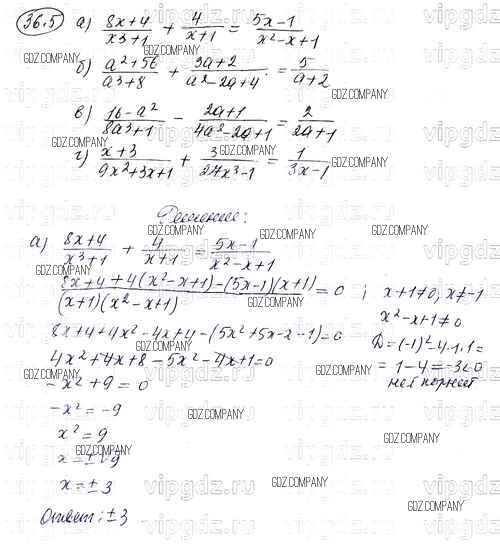 36.5 а) (8x+4)/(x³+1) + 4/(x+1) = (5x-1)/(x²-x+1)
б) (a²+56)/(a³+8) + (3a+2)/(a²-2a+4) = 5/(a+2)
в) (16-a²)/(8a³+1) - (2a+1)/(4a²-2a+1) = 2/(2a+1)
г) (x+3)/(9x²+3x+1) + 3/(27x³-1) = 1/(3x-1)
Решение:
а) (8x+4)/(x³+1) + 4/(x+1) = (5x-1)/(x²-x+1)
(8x+4+4(x²-x+1)-(5x-1)(x+1))/((x+1)(x²-x+1)) = 0 ; x+1≠0, x≠-1
x²-x+1≠0
8x+4+4x²-4x+4-(5x²+5x-x-1)=0
D=(-1)²-4·1·1=
4x²+4x+8-5x²-4x+1=0
=1-4=-3<0
нет корней
-x²+9=0
-x²=-9
x²=9
x=±√9
x=±3
Ответ: ±3
GDZ.COMPANY
vipgdz.ru